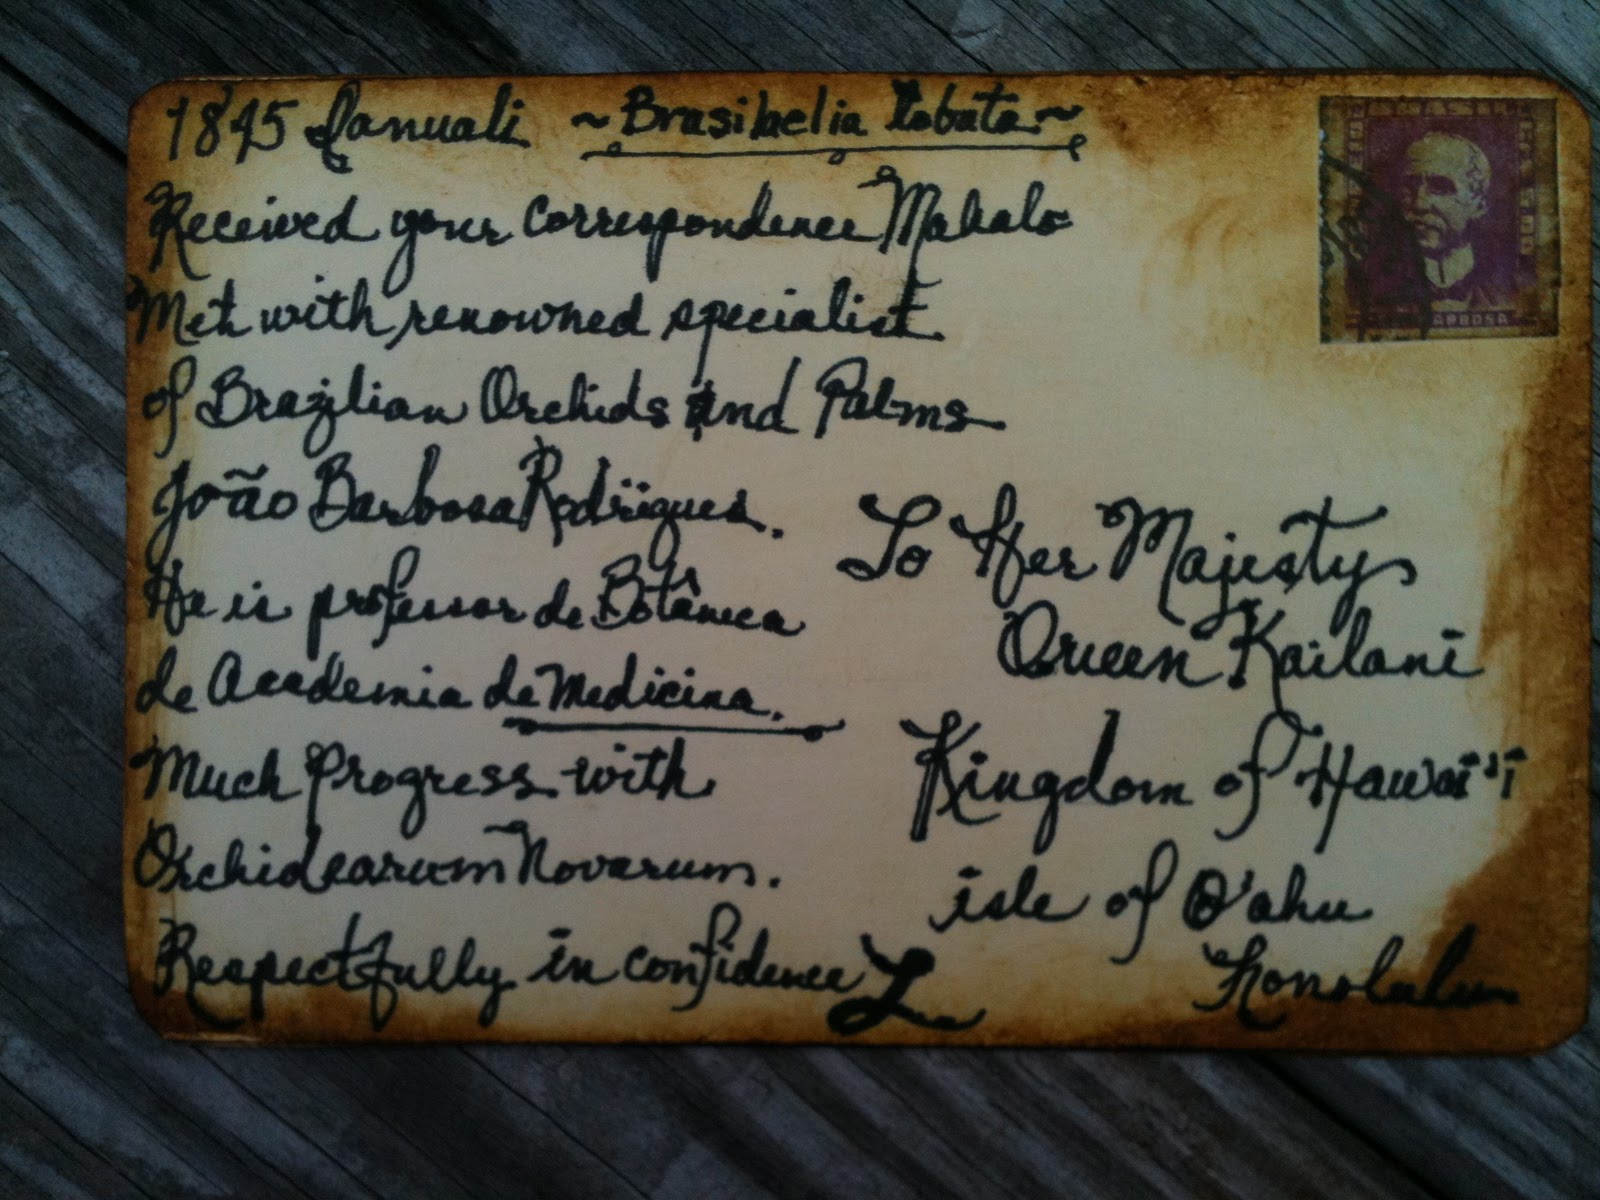 1845 Ianuali ~Brasilaelia lobata~
Received your correspondence Mahalo
Met with renowned specialist
of Brazilian Orchids and Palms
João Barbosa Rodrigues.
He is professor de Botânica
de Academia de Medicina.
Much Progress with
Orchidearum Novarum.
Respectfully in confidence L
ARBOSA
To Her Majesty
Queen Kailani
Kingdom of Hawai'i
isle of O'ahu
Honolulu